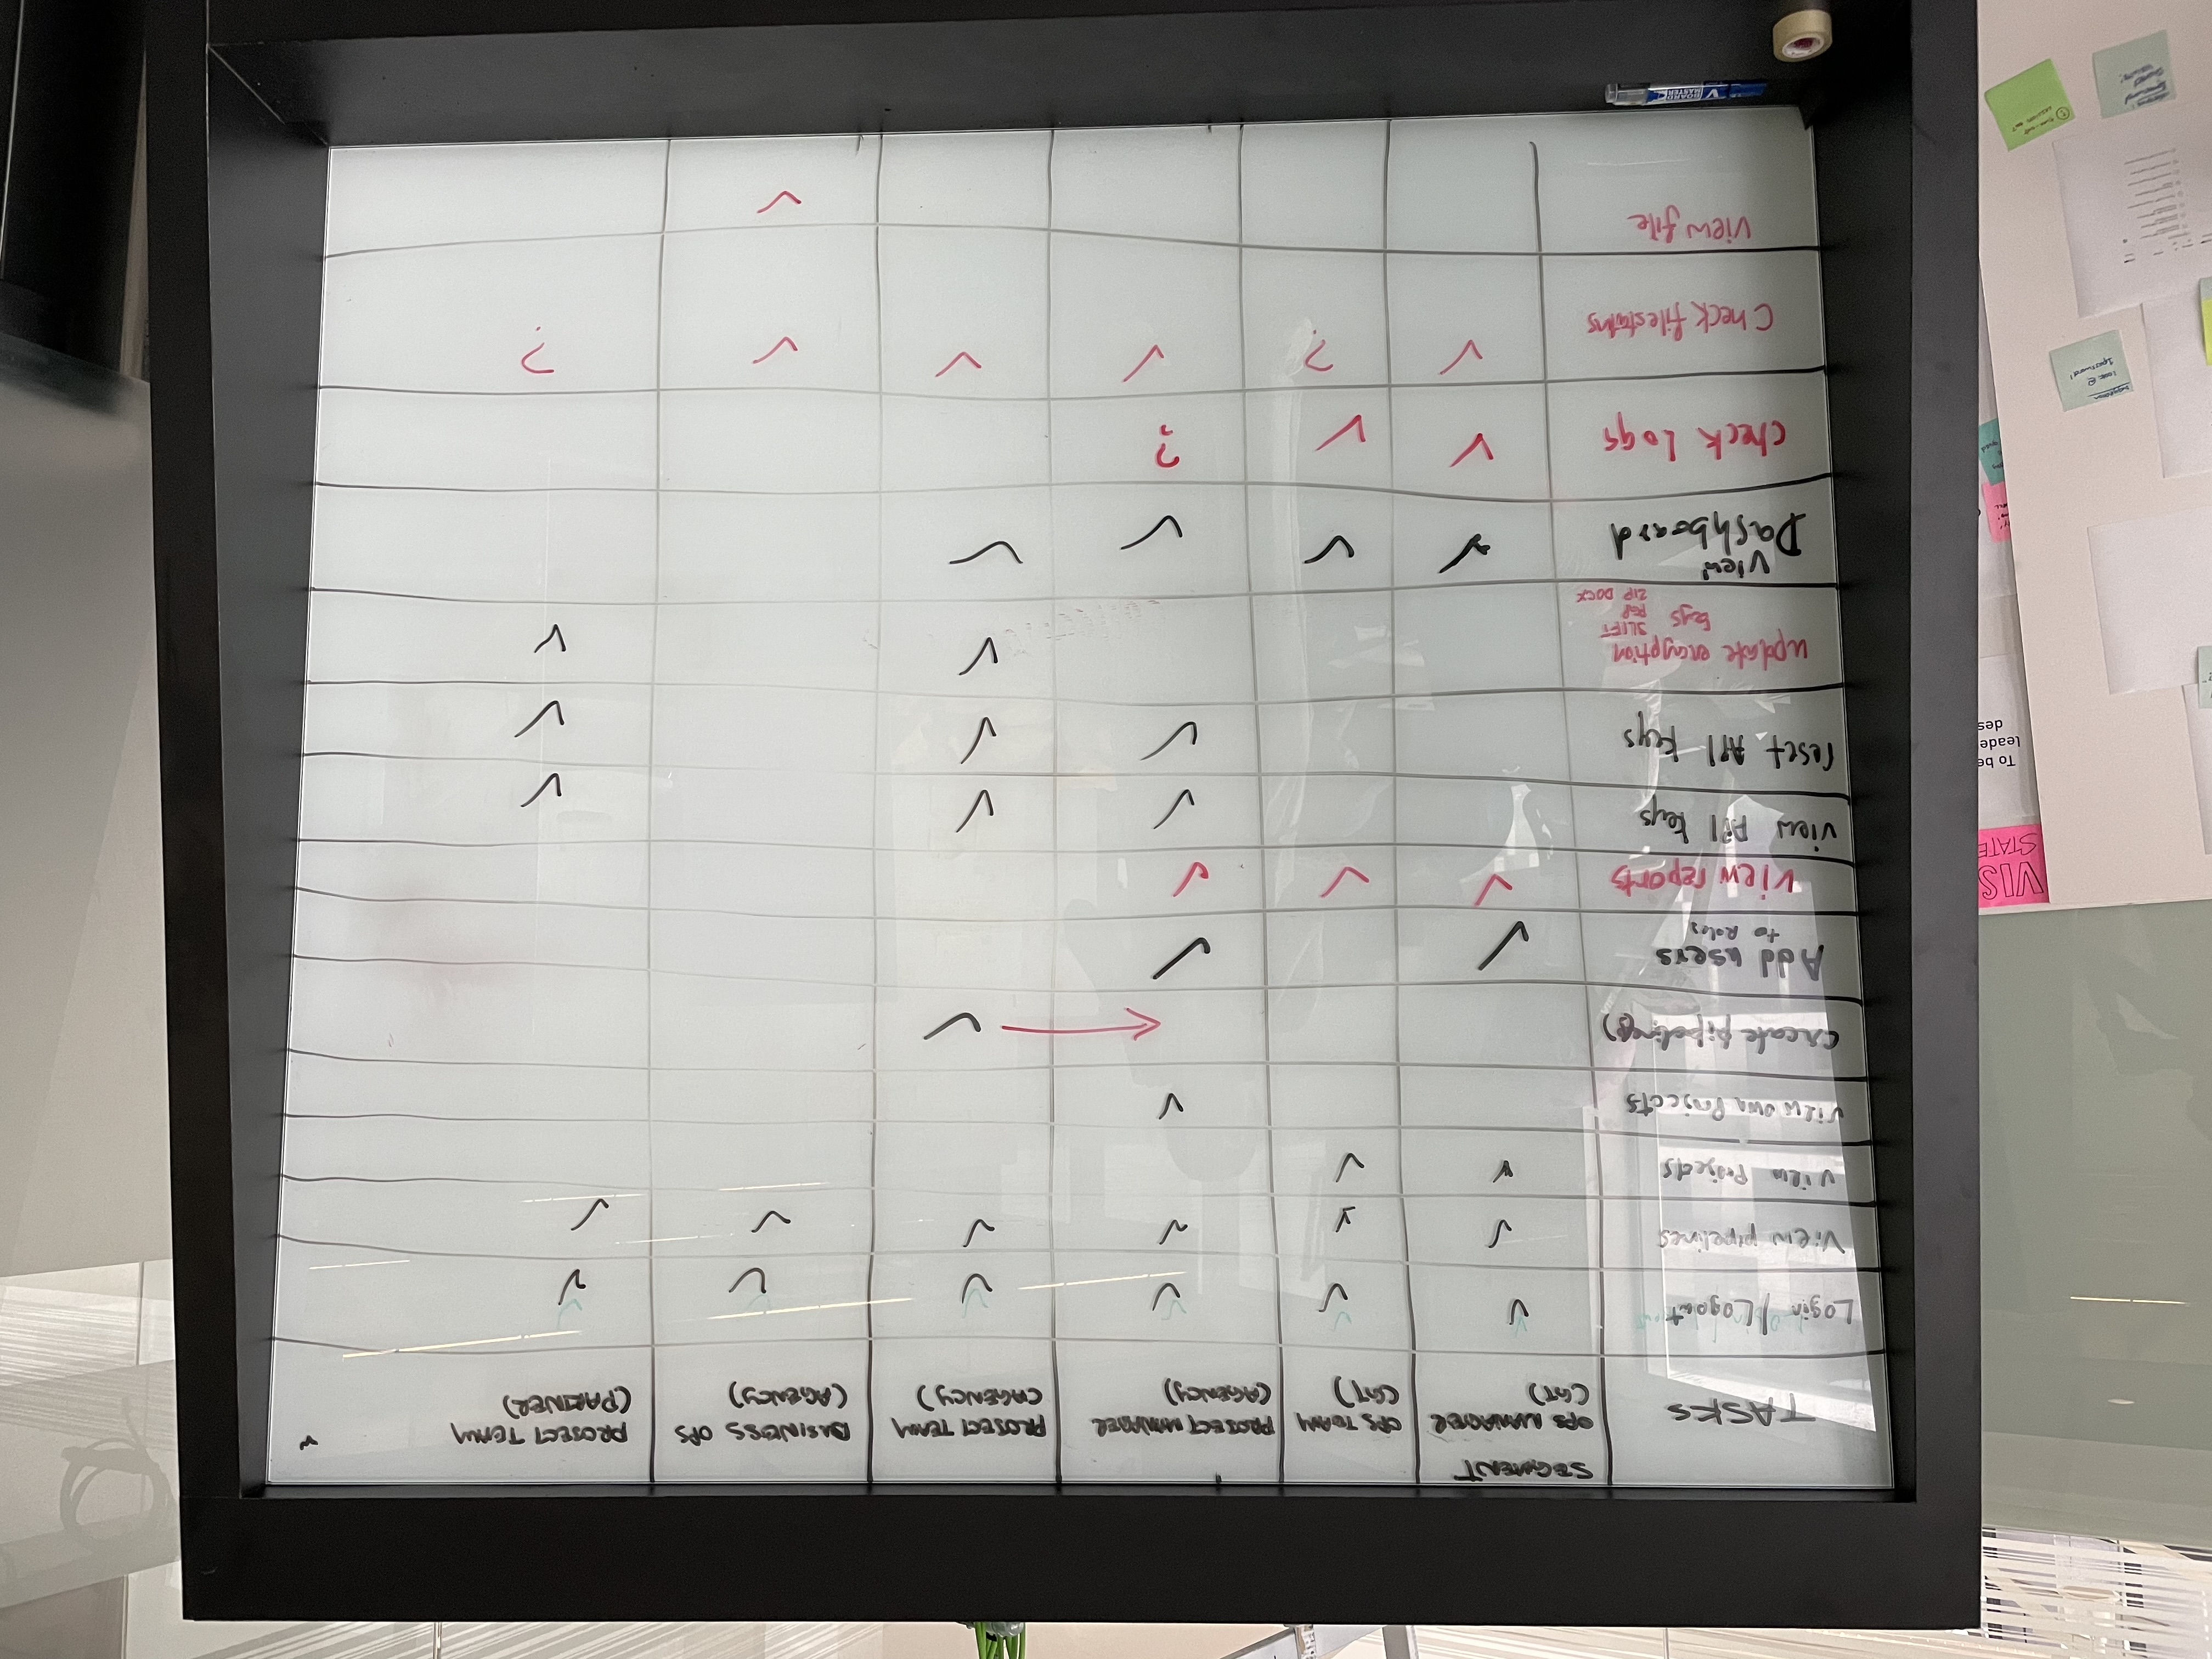 SEGMENT
TASKS
OPS MANAGER
(GT)
OPS TEAM
(GT)
PROJECT MANAGER
(AGENCY)
PROJECT TEAM
(AGENCY)
BUSINESS OPS
(AGENCY)
PROJECT TEAM
(PARTNER)
Login / Logout ✓ ✓ ✓ ✓ ✓ ✓
View pipelines ✓ ✓ ✓ ✓ ✓ ✓
View Projects ✓ ✓
View own Projects ✓
Create pipeline(s) ← ✓
Add users ✓ ✓
to Roles
View reports ✓ ✓ ✓
view API keys ✓ ✓ ✓
reset API keys ✓ ✓ ✓
update encryption ✓ ✓
keys
SLIFT
PGP
ZIP DOCX
View
Dashboard ✓ ✓ ✓ ✓
check Logs ✓ ✓ ?
Check file status ✓ ? ✓ ✓ ✓ ?
View file ✓
VIS
STATE
To be
leade
des
look @
1password!
V BOARD
MASTER